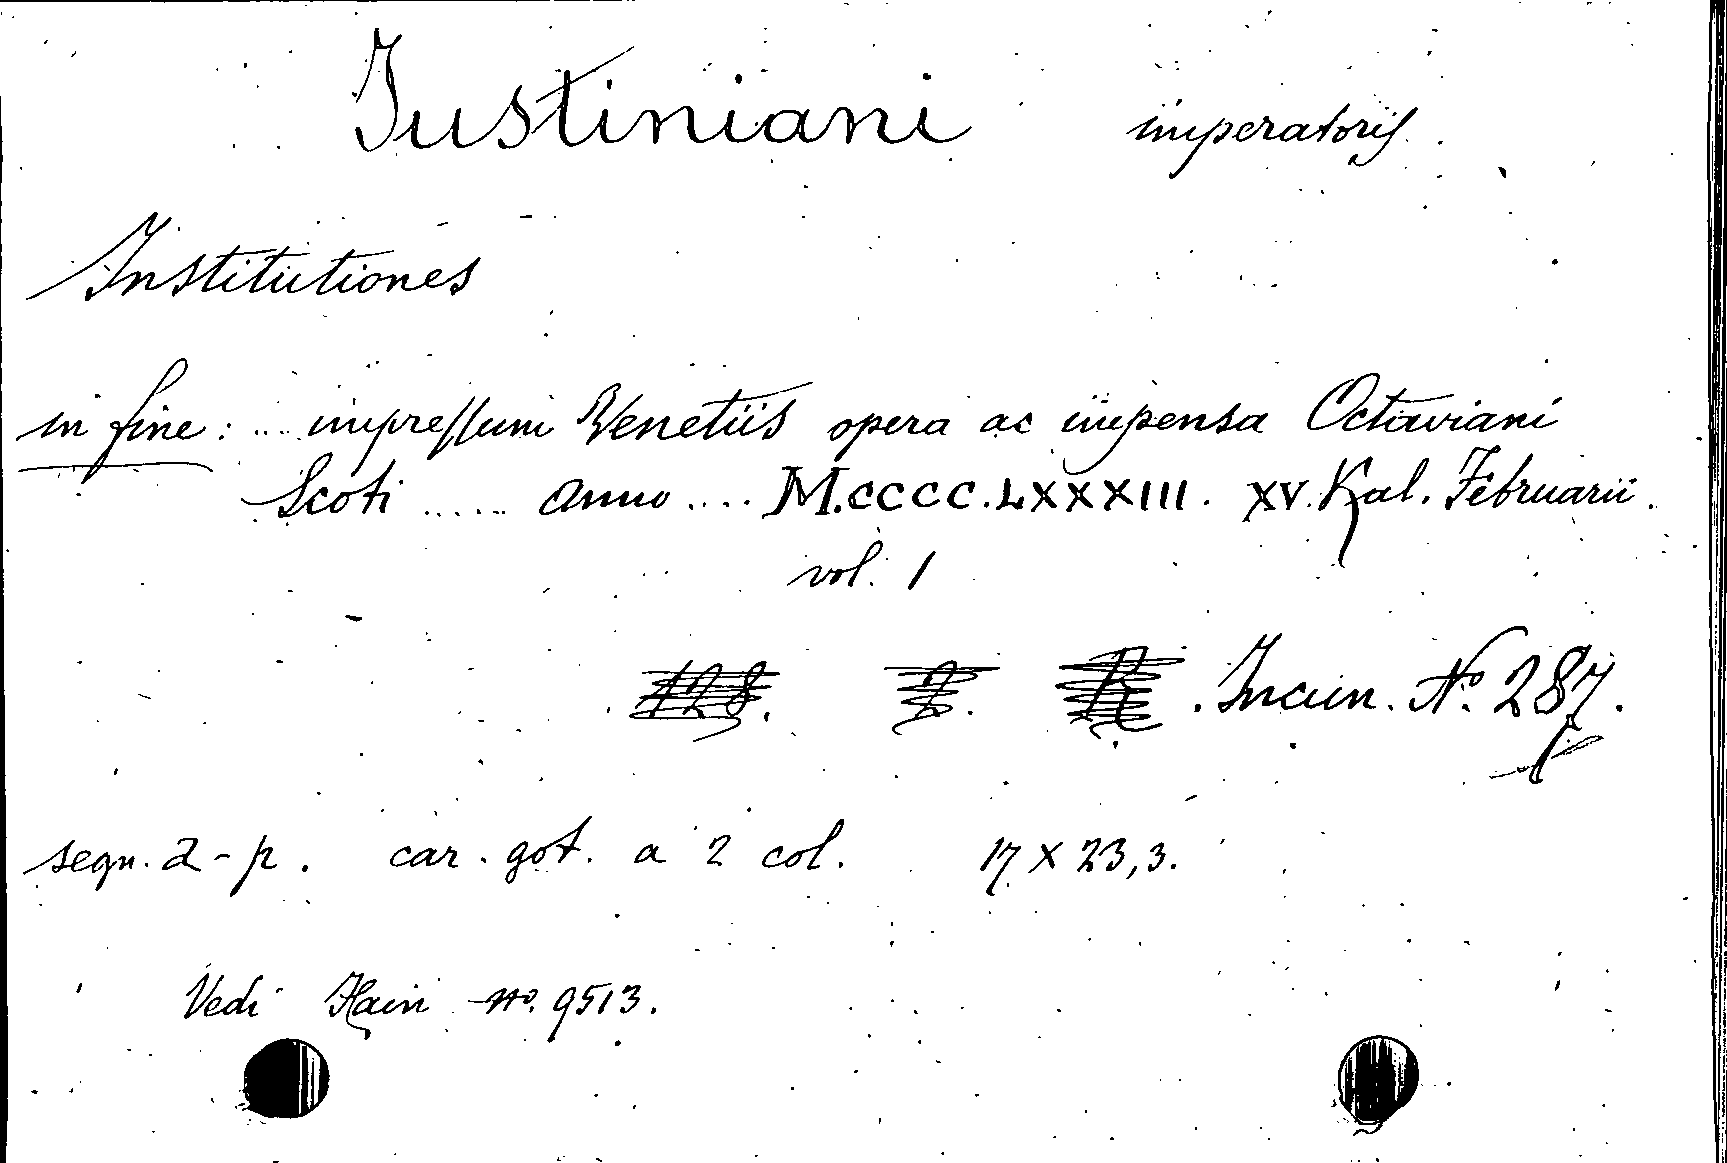 Justiniani imperatoris
Institutiones
in fine: .... impressum Venetiis opera ac impensa Octaviani
Scoti ..... anno .... M.CCCC.LXXXIII. XV. Kal. Februarii.
vol. 1
. Incun. No. 287.
segn. a-p. car. got. a 2 col. 17 X 23,3.
Vedi Hain no. 9513.